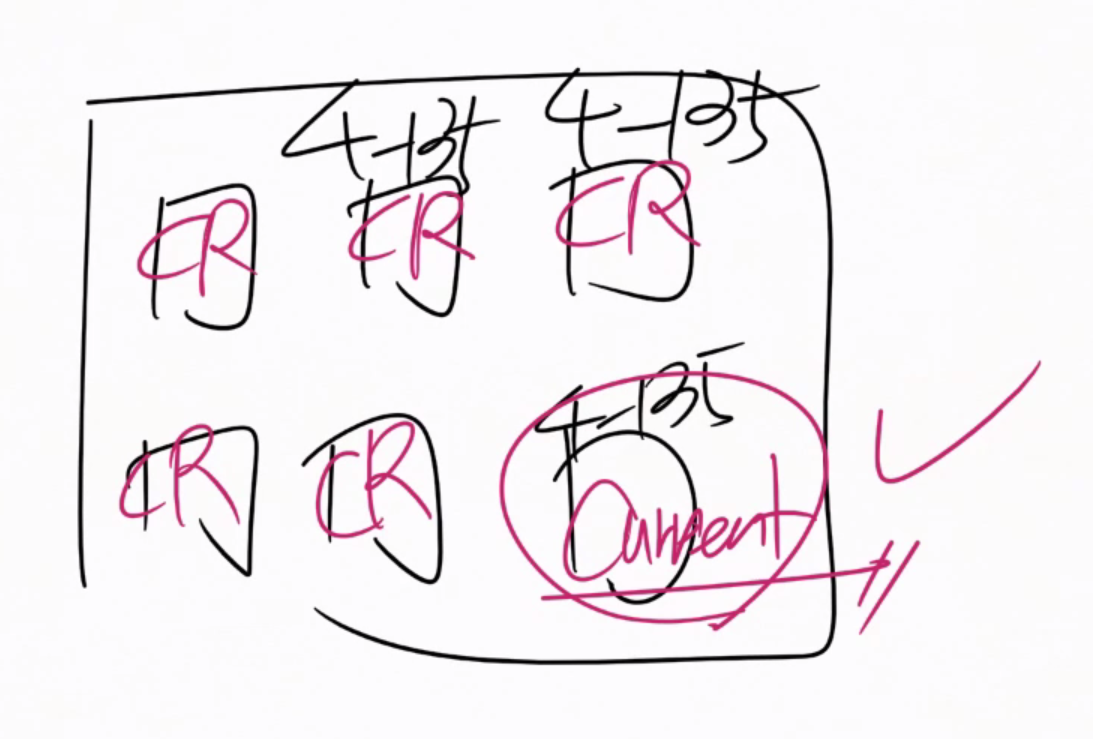 4-135 4-135
CR CR CR
4-135
CR CR Current